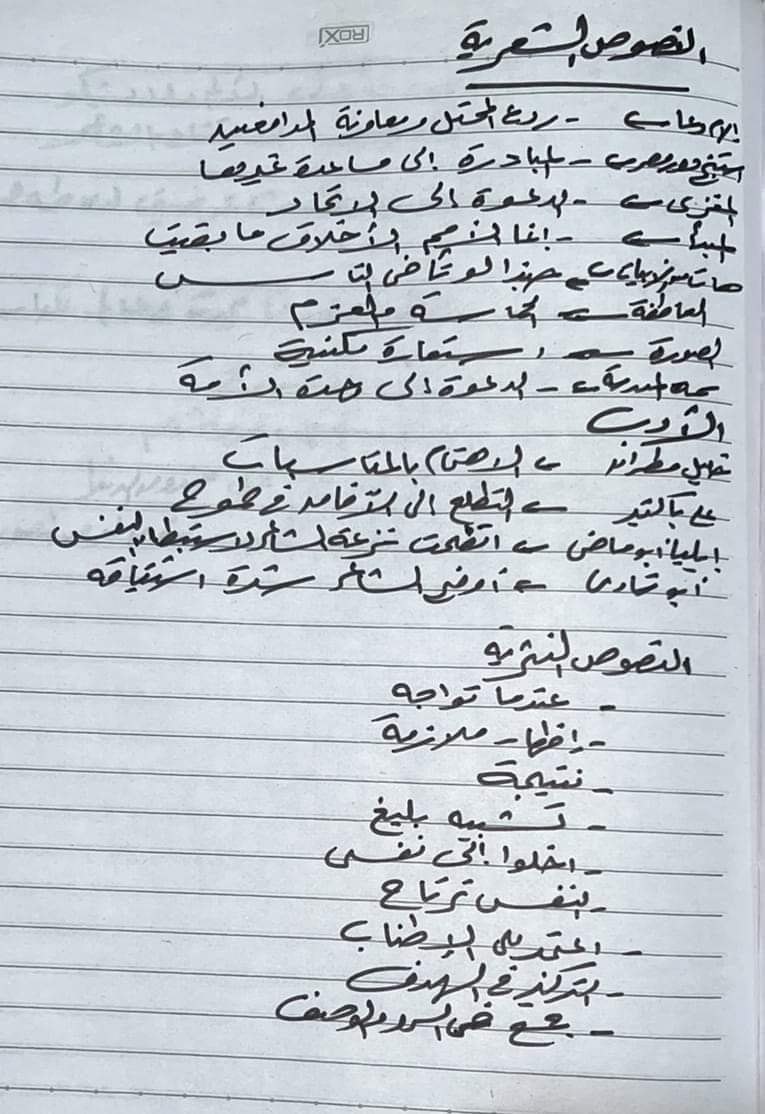 ROXI
النصوص الشعرية
الإدعاء - ردع المحتل ومعاونة المدافعين
استنتج دور مصر - المبادرة إلى مساعدة غيرها
المغزى - الدعوة إلى الاتحاد
المبدأ - إنما الأمم الأخلاق ما بقيت
هذا لو شأ في الناس
العاطفة الحماسة والعزم
الصورة استعارة مكنية
سمه المدرسة - الدعوة إلى وحدة الأمة
الأدب
خليل مطران الاهتمام بالمناسبات
على باكثير التطلع إلى التقدم في طموح
إيليا أبو ماضى اتضحت نزعة الشاعر لاستبطان النفس
أبو شادى أوضح الشاعر شدة اشتياقه
النصوص النثرية
- عندما تواجه
- إظهار ملازمة
- نتيجة
- تشبيه بليغ
- اخلوا إلى نفسى
- النفس ترتاح
- اعتمد على الإطناب
- التركيز فى الهدف
- يجمع فى السرد والوصف